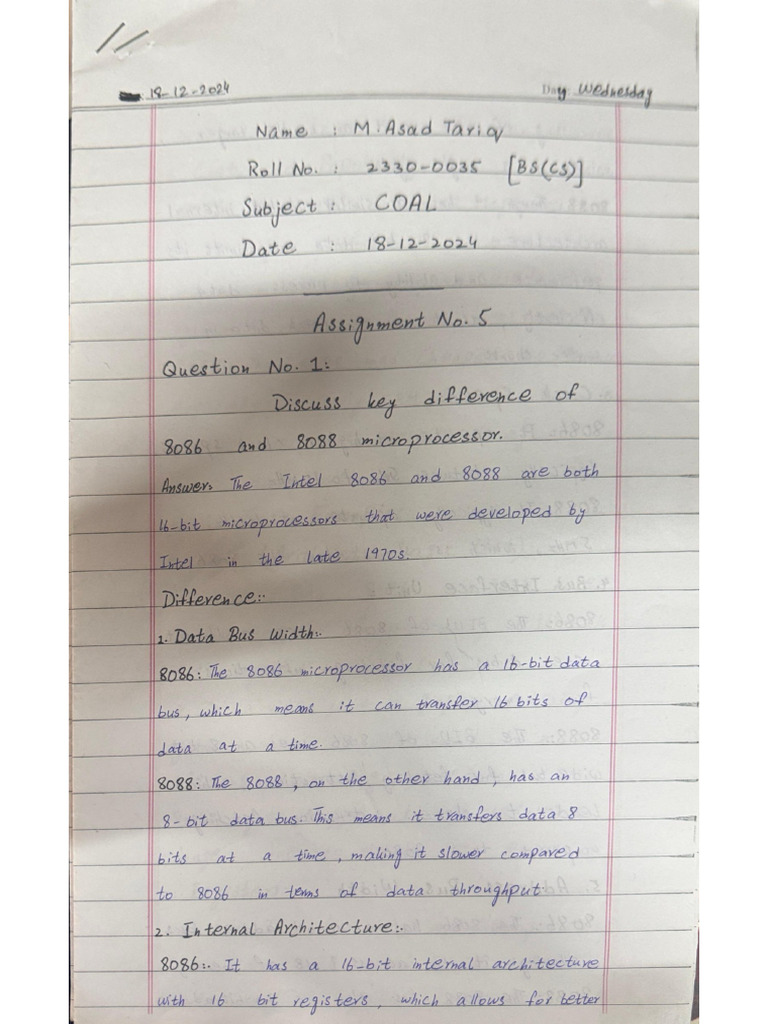 18-12-2024 Day Wednesday
Name : M. Asad Tariq
Roll No. : 2330-0035 [BS(CS)]
Subject : COAL
Date : 18-12-2024
Assignment No. 5
Question No. 1:
Discuss key difference of
8086 and 8088 microprocessor.
Answer: The Intel 8086 and 8088 are both
16-bit microprocessors that were developed by
Intel in the late 1970s.
Difference:.
1. Data Bus Width:.
8086: The 8086 microprocessor has a 16-bit data
bus, which means it can transfer 16 bits of
data at a time.
8088: The 8088, on the other hand, has an
8-bit data bus. This means it transfers data 8
bits at a time, making it slower compared
to 8086 in terms of data throughput.
2. Internal Architecture:.
8086:. It has a 16-bit internal architecture
with 16 bit registers, which allows for better